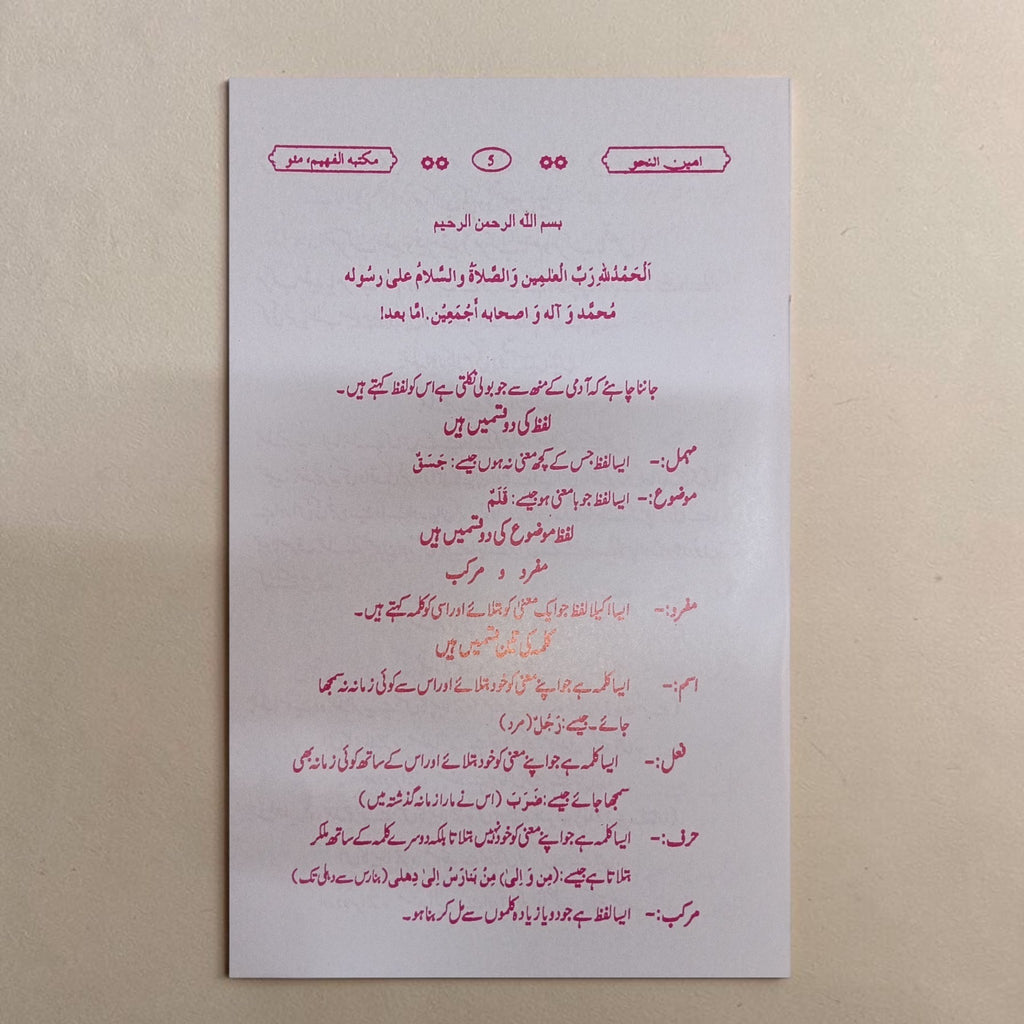 امین النحو
5
مکتبہ الفہیم، مئو
بسم اللہ الرحمن الرحیم
اَلْحَمْدُلِلّٰہِ رَبِّ الْعٰلمِین وَالصَّلاۃُ والسَّلامُ علیٰ رسُولہ
مُحمَّد وَ آلہ وَ اصحابہ أَجْمَعِیْن. امَّا بعد!
جاننا چاہئے کہ آدمی کے منھ سے جو بولی نکلتی ہے اس کو لفظ کہتے ہیں۔
لفظ کی دو قسمیں ہیں
مہمل:- ایسا لفظ جس کے کچھ معنی نہ ہوں جیسے: جَسَقٌ
موضوع:- ایسا لفظ جو بامعنی ہو جیسے: قَلَمٌ
لفظ موضوع کی دو قسمیں ہیں
مفرد و مرکب
مفرد:- ایسا اکیلا لفظ جو ایک معنی کو بتلائے اور اسی کو کلمہ کہتے ہیں۔
کلمہ کی تین قسمیں ہیں
اسم:- ایسا کلمہ ہے جو اپنے معنی کو خود بتلائے اور اس سے کوئی زمانہ نہ سمجھا
جائے۔ جیسے: رَجُلٌ (مرد)
فعل:- ایسا کلمہ ہے جو اپنے معنی کو خود بتلائے اور اس کے ساتھ کوئی زمانہ بھی
سمجھا جائے جیسے: ضَرَبَ (اس نے مارا زمانہ گذشتہ میں)
حرف:- ایسا کلمہ ہے جو اپنے معنی کو خود نہیں بتلاتا بلکہ دوسرے کلمہ کے ساتھ ملکر
بتلاتا ہے جیسے: (مِن وَ اِلیٰ) مِنْ بَنَارَسْ اِلیٰ دِھلی (بنارس سے دہلی تک)
مرکب:- ایسا لفظ ہے جو دو یا زیادہ کلموں سے مل کر بنا ہو۔